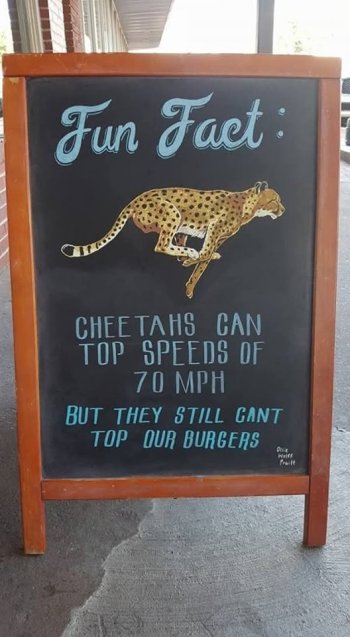 Fun Fact:
CHEETAHS CAN
TOP SPEEDS OF
70 MPH
BUT THEY STILL CANT
TOP OUR BURGERS